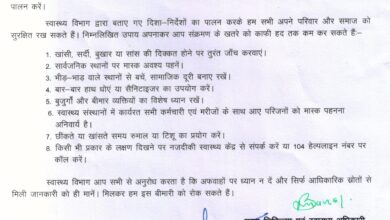 पालन करें।
स्वास्थ्य विभाग द्वारा बताए गए दिशा-निर्देशों का पालन करके हम सभी अपने परिवार और समाज को
सुरक्षित रख सकते हैं। निम्नलिखित उपाय अपनाकर आप संक्रमण के खतरे को काफी हद तक कम कर सकते हैं:-
1. खांसी, सर्दी, बुखार या सांस की दिक्कत होने पर तुरंत जाँच करवाएं।
2. सार्वजनिक स्थानों पर मास्क अवश्य पहनें।
3. भीड़-भाड़ वाले स्थानों से बचें, सामाजिक दूरी बनाए रखें।
4. बार-बार हाथ धोएं या सैनिटाइजर का उपयोग करें।
5. बुजुर्गों और बीमार व्यक्तियों का विशेष ध्यान रखें।
6. स्वास्थ्य संस्थानों में कार्यरत सभी कर्मचारी एवं मरीजों के साथ आए परिजनों को मास्क पहनना
अनिवार्य है।
7. छींकते या खांसते समय रुमाल या टिशू का प्रयोग करें।
8. किसी भी प्रकार के लक्षण दिखने पर नजदीकी स्वास्थ्य केंद्र से संपर्क करें या 104 हेल्पलाइन नंबर पर
कॉल करें।
स्वास्थ्य विभाग आप सभी से अनुरोध करता है कि अफवाहों पर ध्यान न दें और सिर्फ आधिकारिक स्रोतों से
मिली जानकारी को ही मानें। मिलकर हम इस बीमारी को रोक सकते हैं।